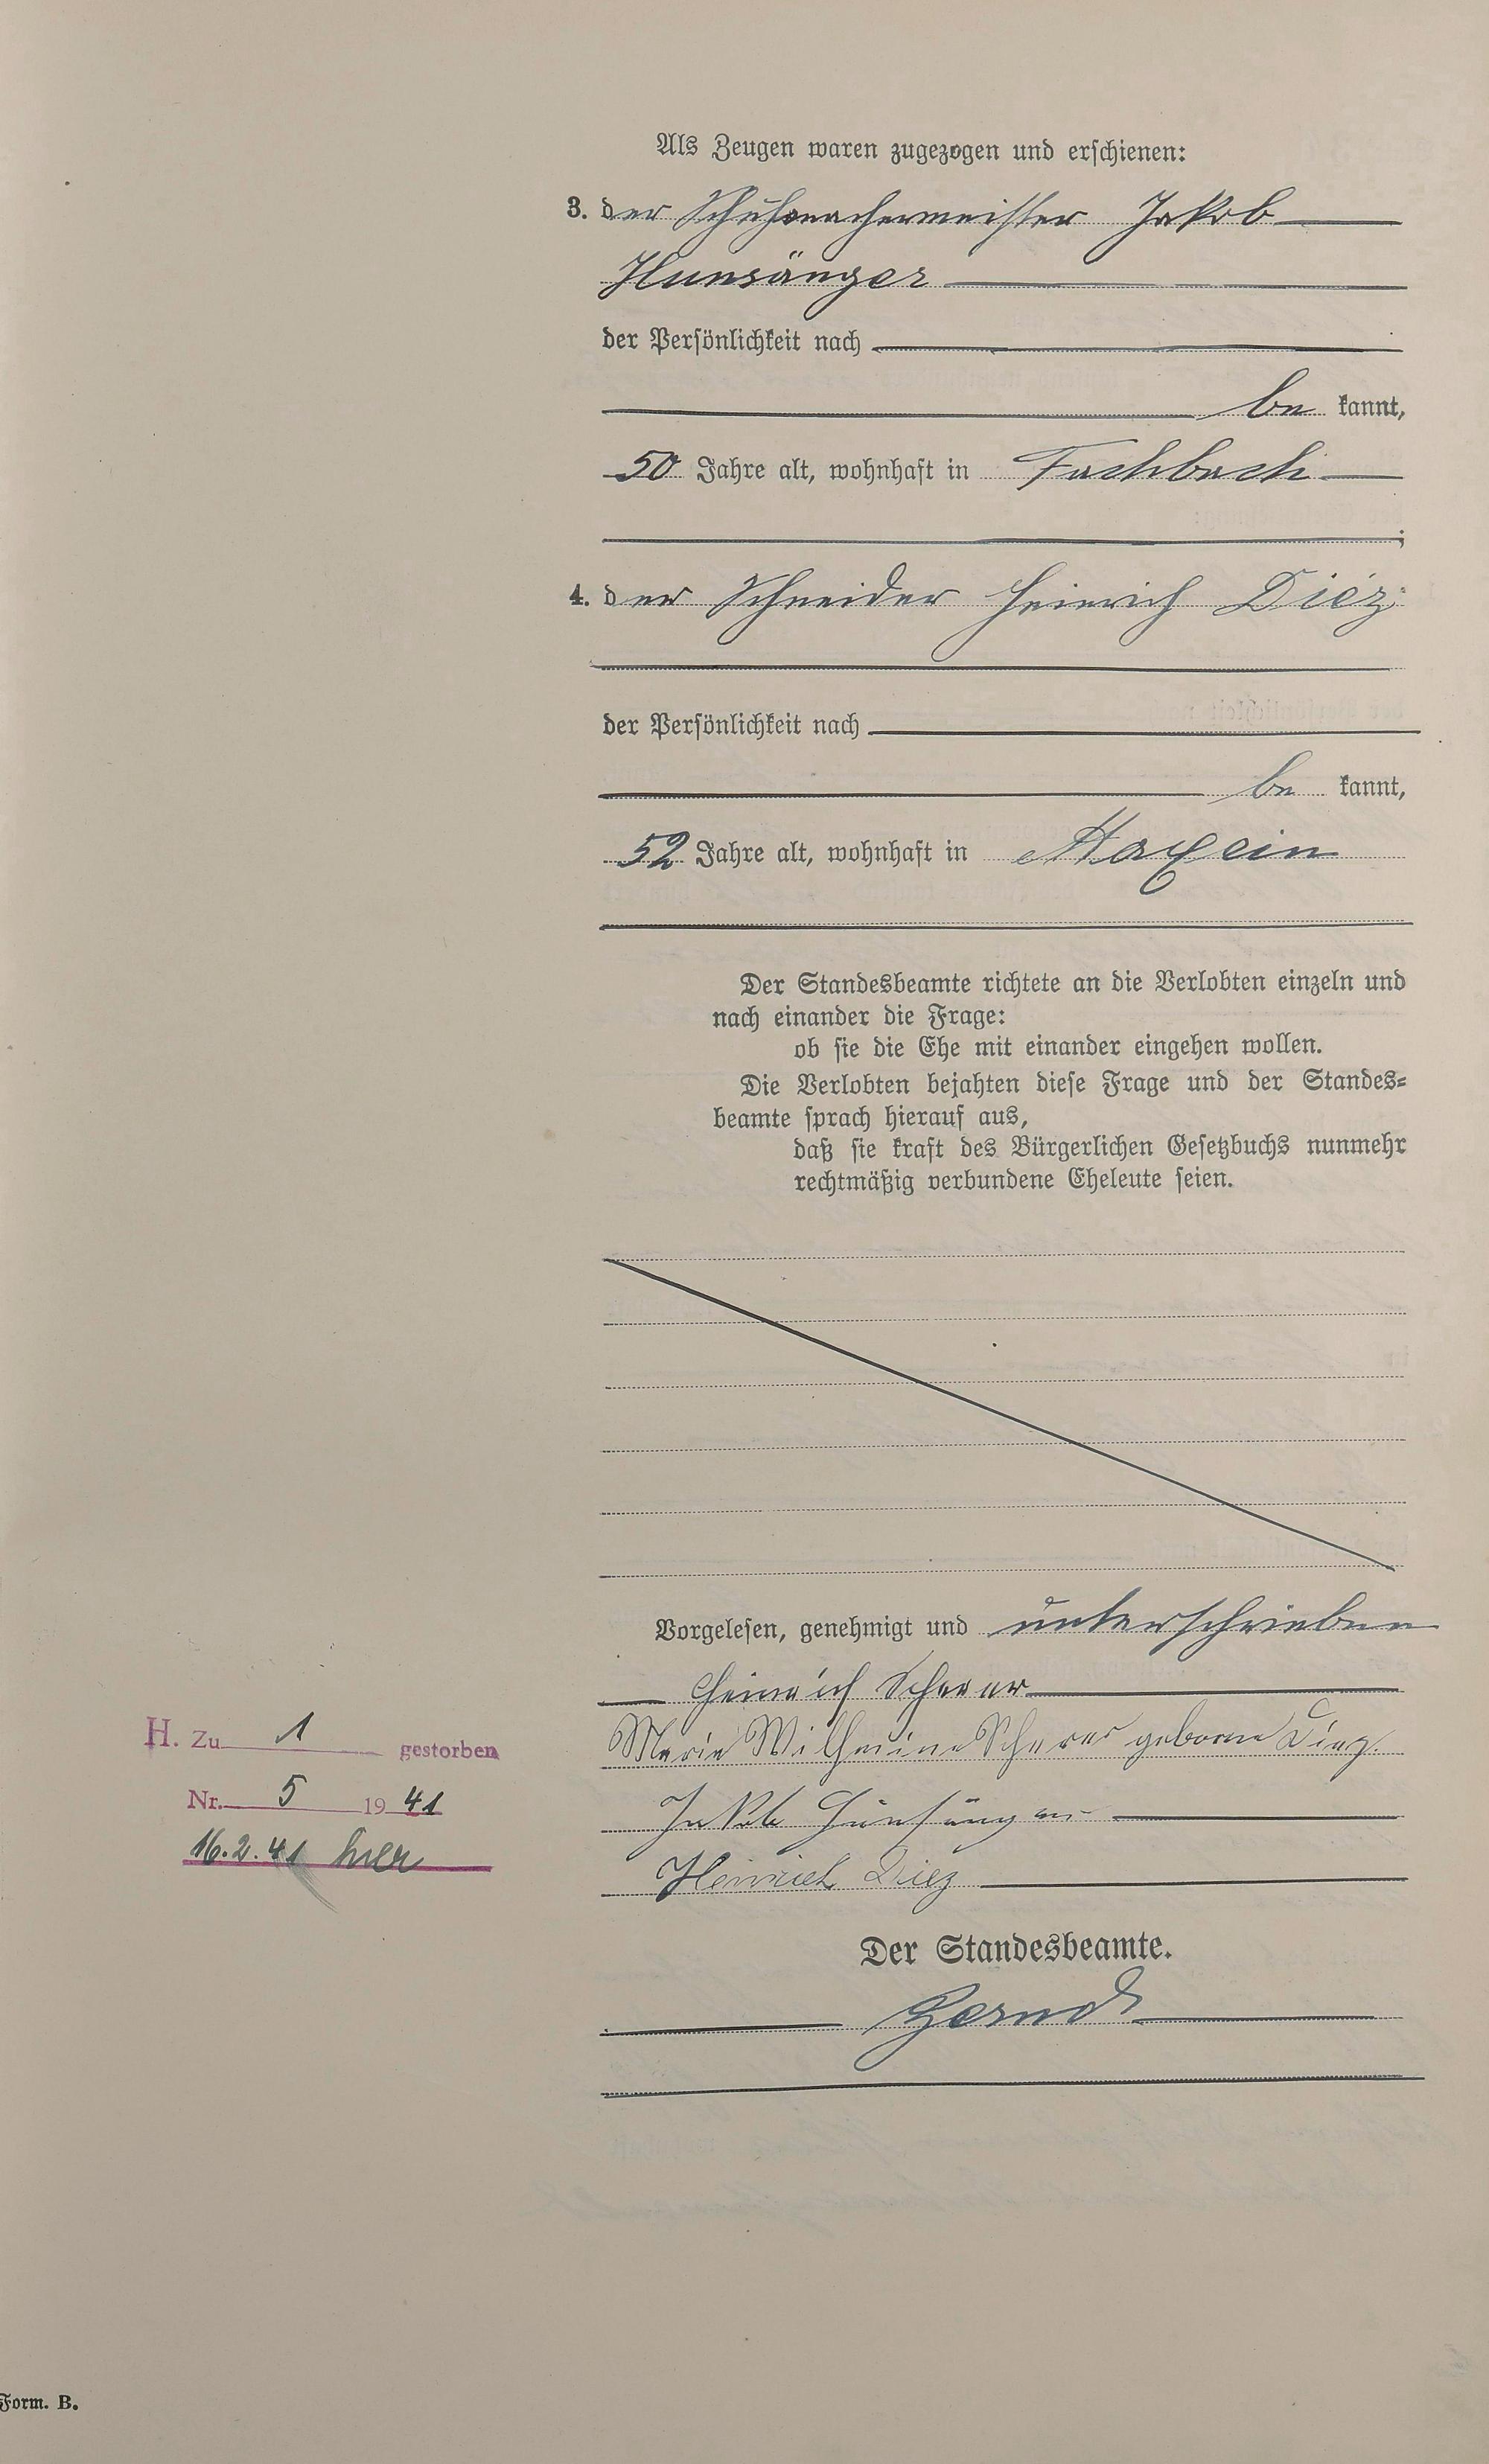 Als Zeugen waren zugezogen und erschienen:
3. der Schuhmachermeister Jakob
Hunsänger
der Persönlichkeit nach
be kannt,
50 Jahre alt, wohnhaft in Fachbach
;
4. der Schneider Heinrich Diez
der Persönlichkeit nach
be kannt,
52 Jahre alt, wohnhaft in Maxsein
Der Standesbeamte richtete an die Verlobten einzeln und
nach einander die Frage:
ob sie die Ehe mit einander eingehen wollen.
Die Verlobten bejahten diese Frage und der Standes-
beamte sprach hierauf aus,
daß sie kraft des Bürgerlichen Gesetzbuchs nunmehr
rechtmäßig verbundene Eheleute seien.
Vorgelesen, genehmigt und unterschrieben
Heinrich Scherer
Maria Wilhelmine Scherer geborne Diez.
Jakob Hunsänger
Heinrich Diez
Der Standesbeamte.
H. Zu 1 gestorben
Nr. 5 1941
16.2.41 hier
Form. B.